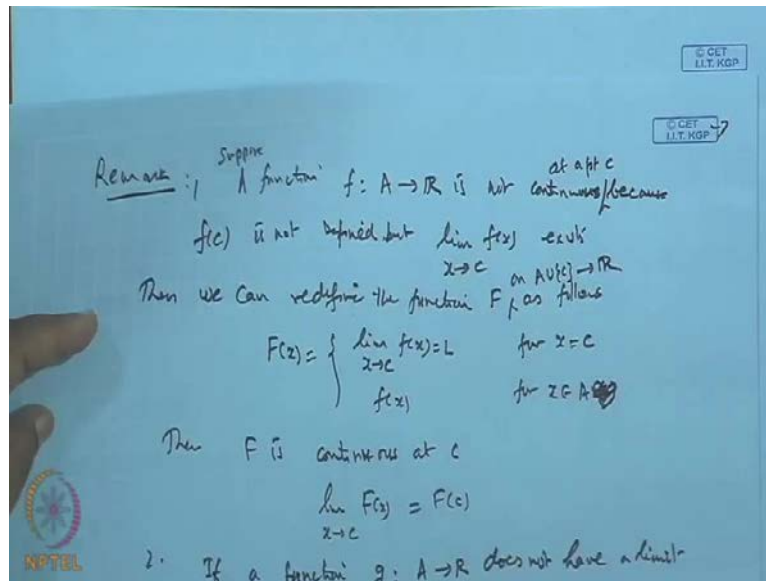 © CET
I.I.T. KGP
© CET
I.I.T. KGP
7
Remark : 1 Suppose A function f: A → R is not continuous at a pt c because
f(c) is not defined but lim f(x) exists
x→c
Then we can redefine the function F, on A∪{c} → R as follows
F(x) = { lim f(x) = L for x = c
x→c
f(x) for x ∈ A
Then F is continuous at c
lim F(x) = F(c)
x→c
2. If a function g: A → R does not have a limit
NPTEL